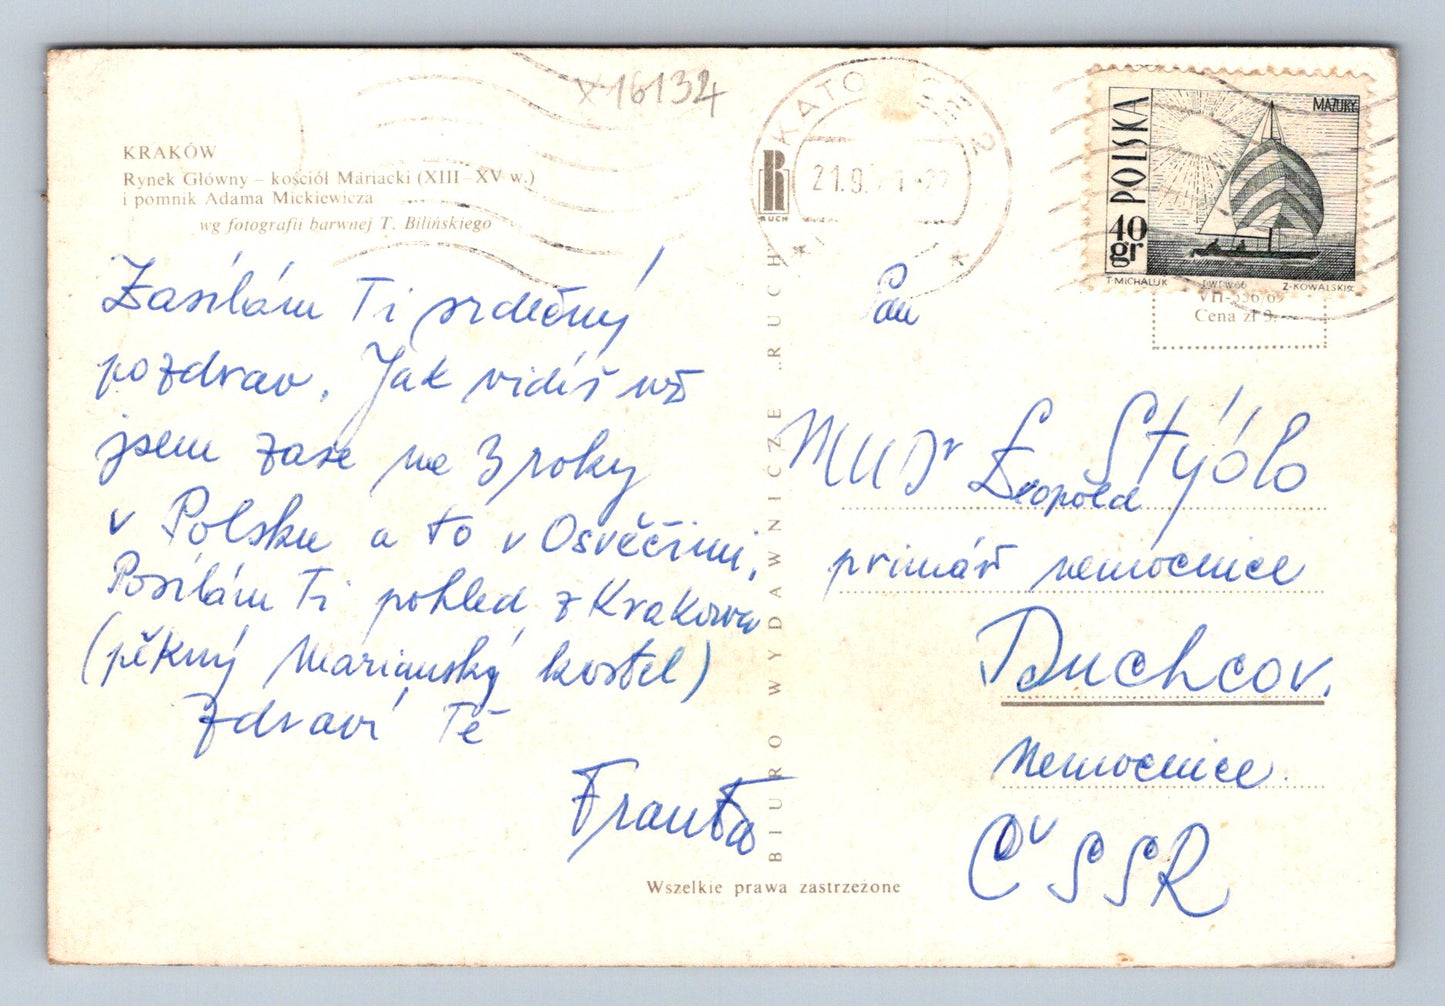 X-16134
KRAKÓW
Rynek Główny – kościół Mariacki (XIII–XV w.)
i pomnik Adama Mickiewicza
wg fotografii barwnej T. Bilińskiego
Zasílám Ti srdečný
pozdrav. Jak vidíš už
jsem zase na 3 roky
v Polsku a to v Osvěčimi.
Posílám Ti pohled z Krakowa
(pěkný Marianský kostel)
Zdraví Tě
Franta
BIURO WYDAWNICZE „RUCH”
Wszelkie prawa zastrzeżone
R
RUCH
KATOWICE 2
21.9.
POLSKA
40 gr
MAZURY
T·MICHALUK
PWPW 66
Z·KOWALSKI
VII-536/69
Cena zł
Pan
MUDr Leopold Stýblo
primář nemocnice
Duchcov.
Nemocnice.
ČSSR